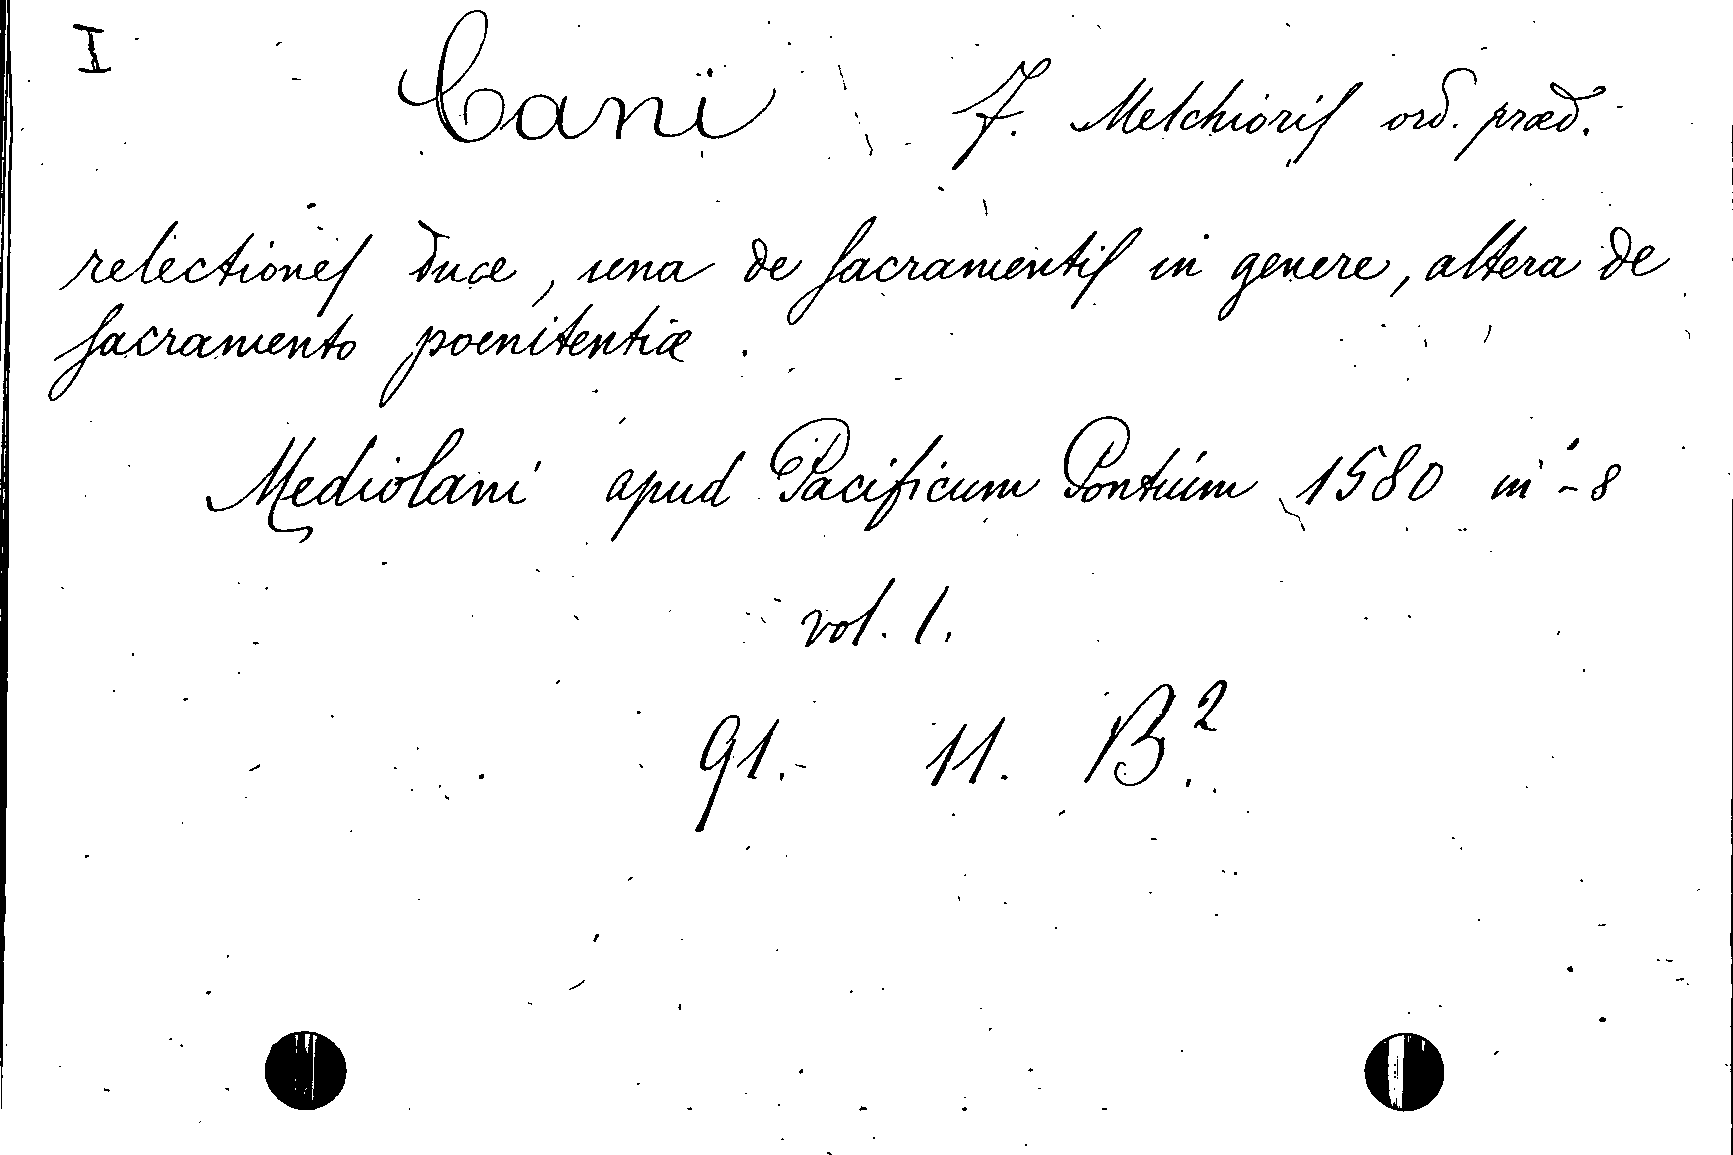 I
Cani F. Melchioris ord. præd.
relectiones duæ, una de sacramentis in genere, altera de
sacramento poenitentiæ.
Mediolani apud Pacificum Pontium 1580 in-8
vol. 1.
91. 11. B².